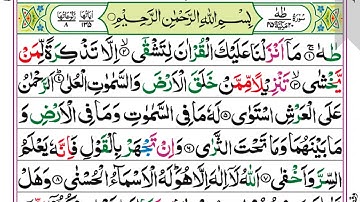 سُورَةُ طٰهٰ بِسْمِ اللهِ الرَّحْمٰنِ الرَّحِيْمِ اٰيَاتُهَا ١٣٥ رُكُوْعَاتُهَا ٨
طٰهٰ ۚ مَاۤ اَنْزَلْنَا عَلَيْكَ الْقُرْاٰنَ لِتَشْقٰۤى ۙ اِلَّا تَذْكِرَةً لِّمَنْ
يَّخْشٰى ۙ تَنْزِيْلًا مِّمَّنْ خَلَقَ الْاَرْضَ وَالسَّمٰوٰتِ الْعُلٰى ؕ اَلرَّحْمٰنُ
عَلَى الْعَرْشِ اسْتَوٰى ۞ لَهٗ مَا فِى السَّمٰوٰتِ وَمَا فِى الْاَرْضِ وَ
مَا بَيْنَهُمَا وَمَا تَحْتَ الثَّرٰى ۞ وَاِنْ تَجْهَرْ بِالْقَوْلِ فَاِنَّهٗ يَعْلَمُ
السِّرَّ وَاَخْفٰى ۞ اَللهُ لَاۤ اِلٰهَ اِلَّا هُوَ ؕ لَهُ الْاَسْمَآءُ الْحُسْنٰى ۞ وَهَلْ